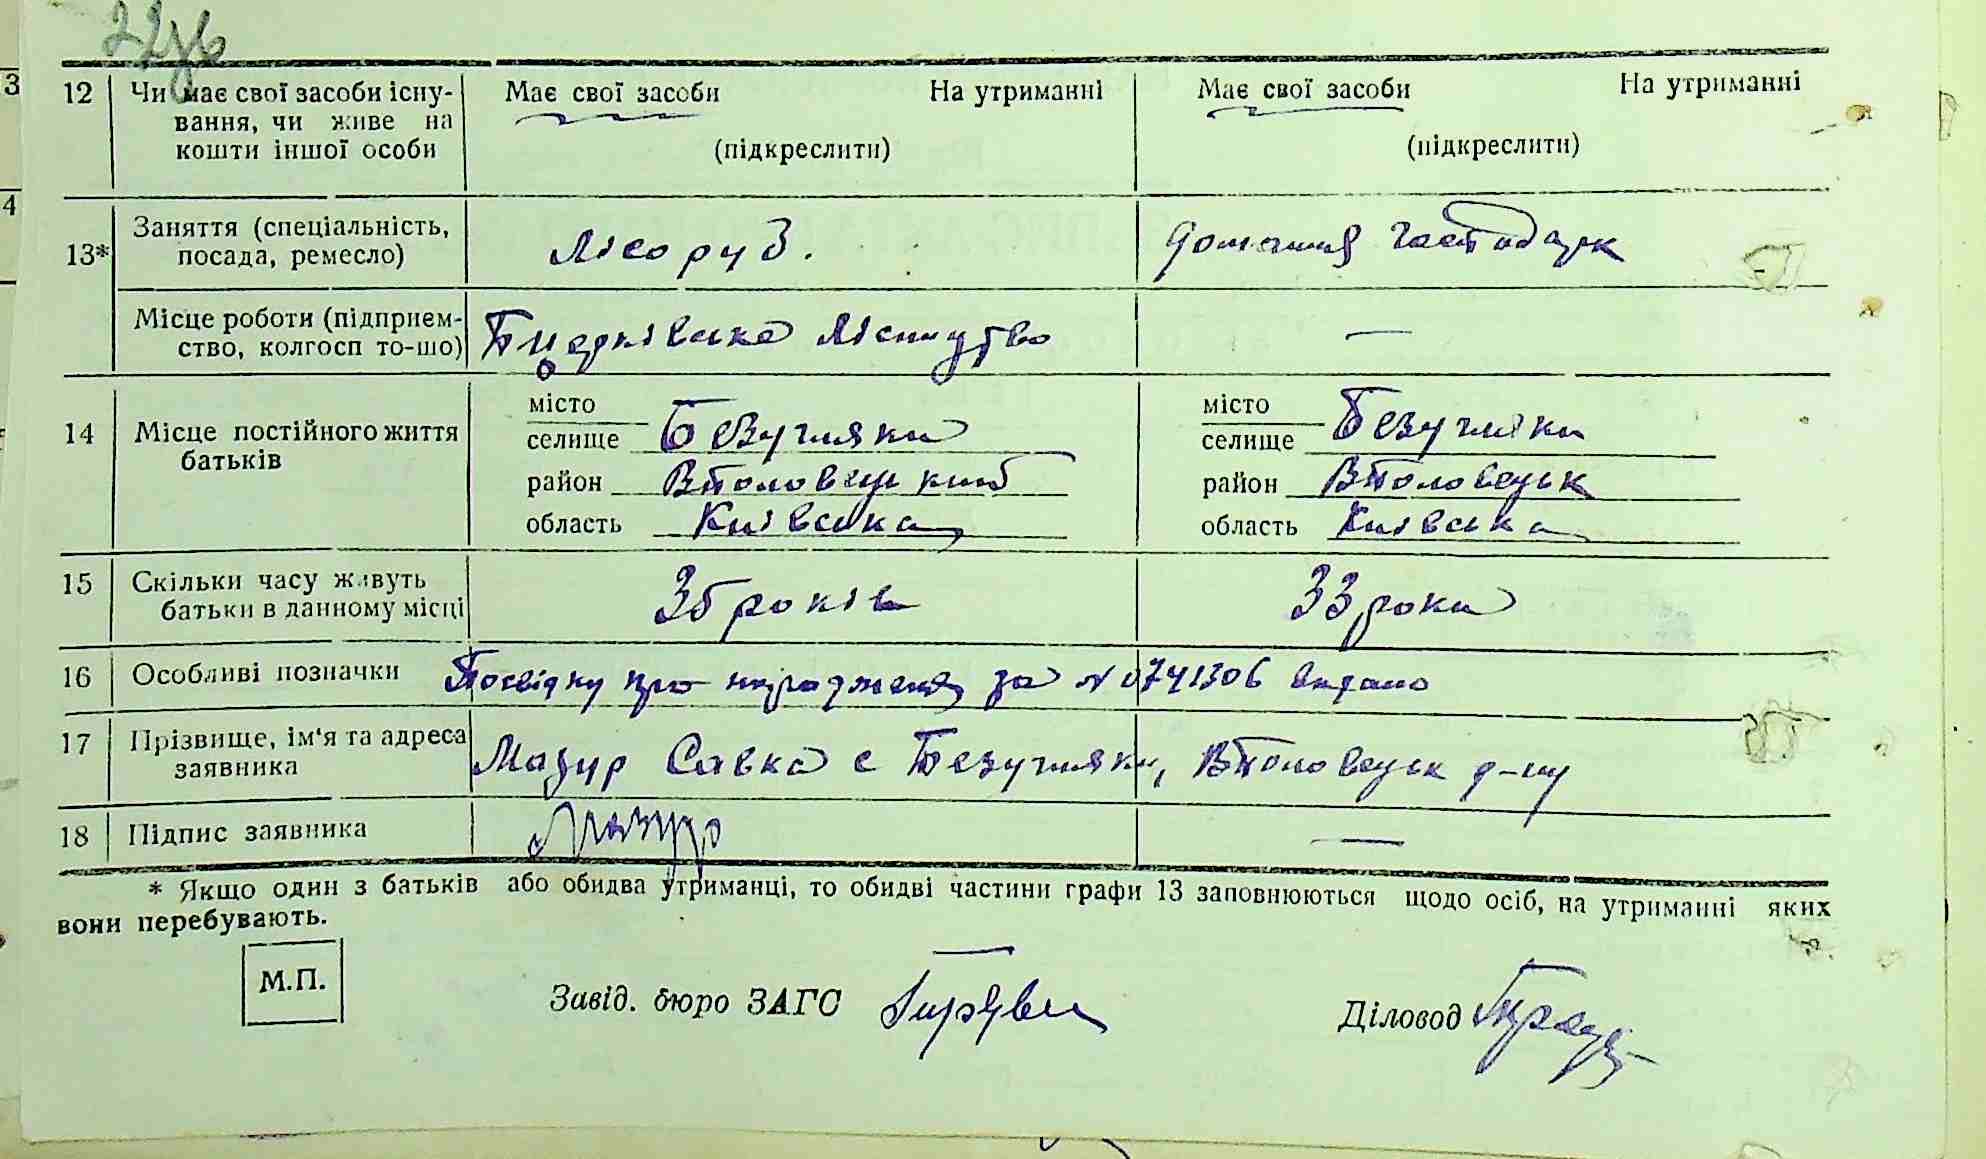 3
4
12 Чи має свої засоби існу- Має свої засоби На утриманні Має свої засоби На утриманні
вання, чи живе на
кошти іншої особи (підкреслити) (підкреслити)
13* Заняття (спеціальність, Лісоруб. домашня
посада, ремесло)
Місце роботи (підприєм- лісництво —
ство, колгосп то-що)
14 Місце постійного життя місто місто
батьків селище Безугляки селище Безугляки
район Втполовецький район Втполовецьк
область Київська область Київська
15 Скільки часу живуть 35 років 33 роки
батьки в данному місці
16 Особливі позначки Посвідку про народження за № 0741306 видано
17 Прізвище, ім'я та адреса Мазур Савка с Безугляки, Втполовецьк р-ну
заявника
18 Підпис заявника Мазур —
* Якщо один з батьків або обидва утриманці, то обидві частини графи 13 заповнюються щодо осіб, на утриманні яких
вони перебувають.
М.П. Завід. бюро ЗАГС Діловод